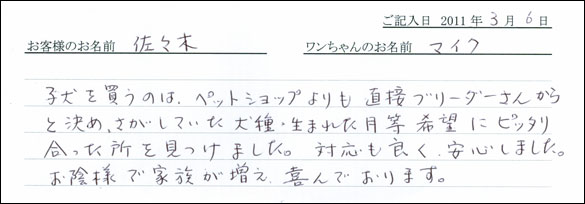 ご記入日 2011年 3月 6日
お客様のお名前 佐々木 ワンちゃんのお名前 マイク
子犬を買うのは、ペットショップよりも 直接ブリーダーさんから
と決め、さがしていた 犬種・生まれた月等 希望に ピッタリ
合った所を見つけました。 対応も良く、安心しました。
お陰様で家族が増え、喜んでおります。